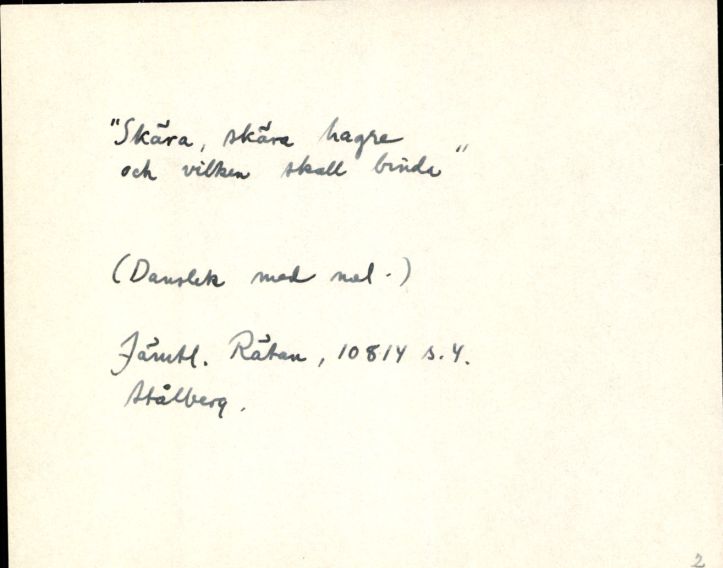 "Skära, skära hagre
och vilken skall binda"
(Danslek med mel.)
Jämtl. Rätan, 10814 s.4.
Stålberg.
2